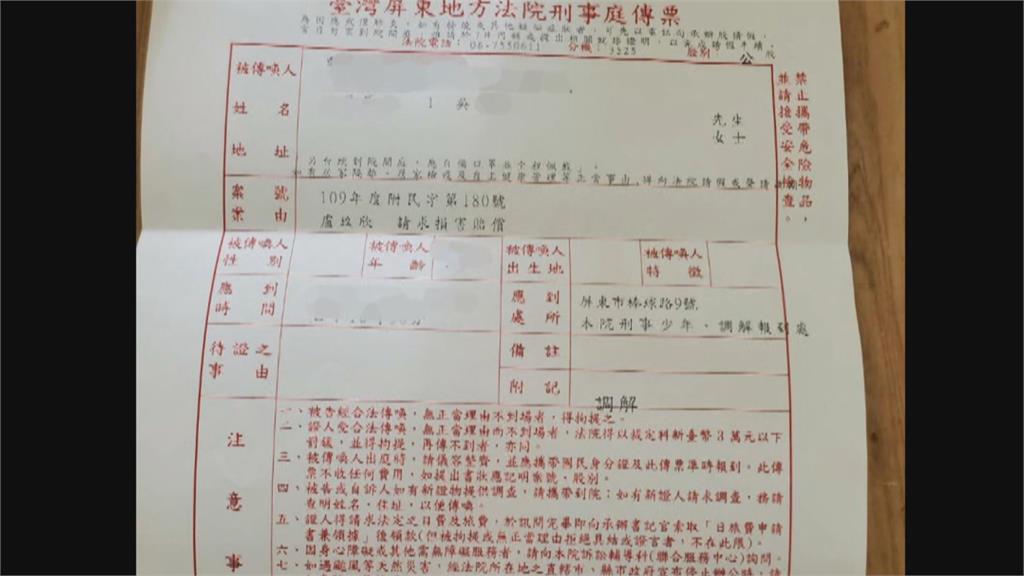 臺灣屏東地方法院刑事庭傳票
法院電話：08-7550611 分機：3225 股別：公 股
並請接受安全檢查。
禁止攜帶危險物品，
被傳喚人
姓名
吳
先生
女士
地址
案號
109年度附民字第180號
案由
請求損害賠償
被傳喚人
性別
被傳喚人
年齡
被傳喚人
出生地
被傳喚人
特徵
應到
時間
應到
處所
屏東市棒球路9號
本院刑事少年、調解報到處
待證之
事由
備註
附記
調解
注意事
一、被告經合法傳喚，無正當理由不到場者，得拘提之。
二、證人受合法傳喚，無正當理由而不到場者，法院得以裁定科新臺幣3萬元以下
罰鍰，並得拘提，再傳不到者，亦同。
三、被傳喚人出庭時，請儀容整齊，並應攜帶國民身分證及此傳票準時報到。此傳
票不收任何費用，如提出書狀應記明案號、股別。
四、被告或自訴人如有新證物提供調查，請攜帶到院；如有新證人請求調查，務請
查明姓名、住址，以便傳喚。
五、證人得請求法定之日費及旅費，於訊問完畢即向承辦書記官索取「日旅費申請
書兼領據」後領款(但被拘提或無正當理由拒絕具結或證言者，不在此限)。
六、因身心障礙或其他需無障礙服務者，請向本院訴訟輔導科(聯合服務中心)詢問。
七、如遇颱風等天然災害，經法院所在地之直轄市、縣市政府宣布停止辦公時，請